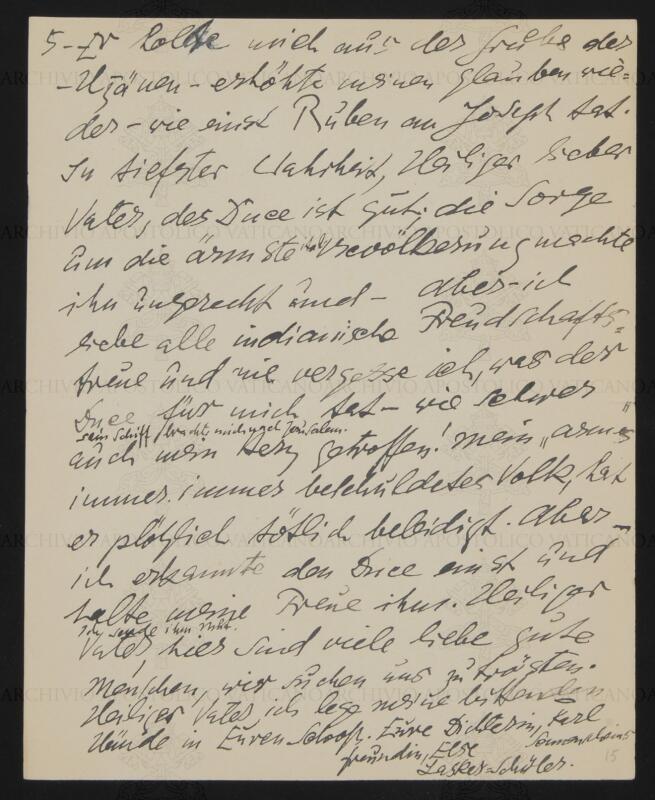 5 - Er holte mich aus der Grube der
- Hyänen - erhöhte meinen Glauben wie=
der - wie einst Ruben an Joseph tat.
In tiefster Wahrheit, Heiliger lieber
Vater, der Duce ist gut; die Sorge
um die ärmste Bevölkerung machte
ihn ungerecht und - aber - ich
liebe alle indianische Freundschafts=
treue und nie vergesse ich, was der
Duce für mich tat - wie schwer
sein Schiff brachte mich nach Jerusalem.
auch mein Herz getroffen! Mein „armes"
immer, immer beschuldetes Volk, hat
er plötzlich tötlich beleidigt. Aber -
ich erkannte den Duce einst und
halte meine Treue ihm. Heiliger
Ich sende ihm
Vater, hier sind viele liebe gute
Menschen, wir suchen uns zu trösten.
Heiliger Vater ich lege meine bittenden
Hände in Euren Schooß. Eure Dichterin,
Freundin, Else
Lasker-Schüler.
15
ARCHIVIO APOSTOLICO VATICANO